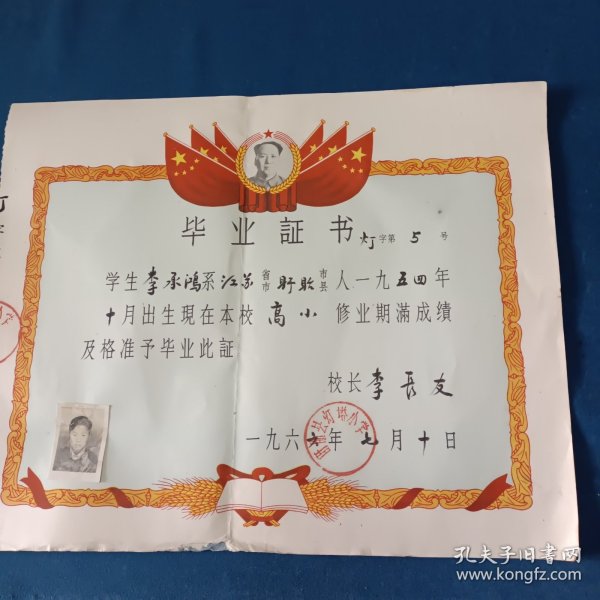 毕业証书
灯字第5号
学生李承鸿系江苏省市盱眙市县人一九五四年
十月出生現在本校高小修业期滿成績
及格准予毕业此証
校长李長友
一九六六年七月十日
盱眙县灯塔小学
孔夫子旧书网
www.kongfz.com